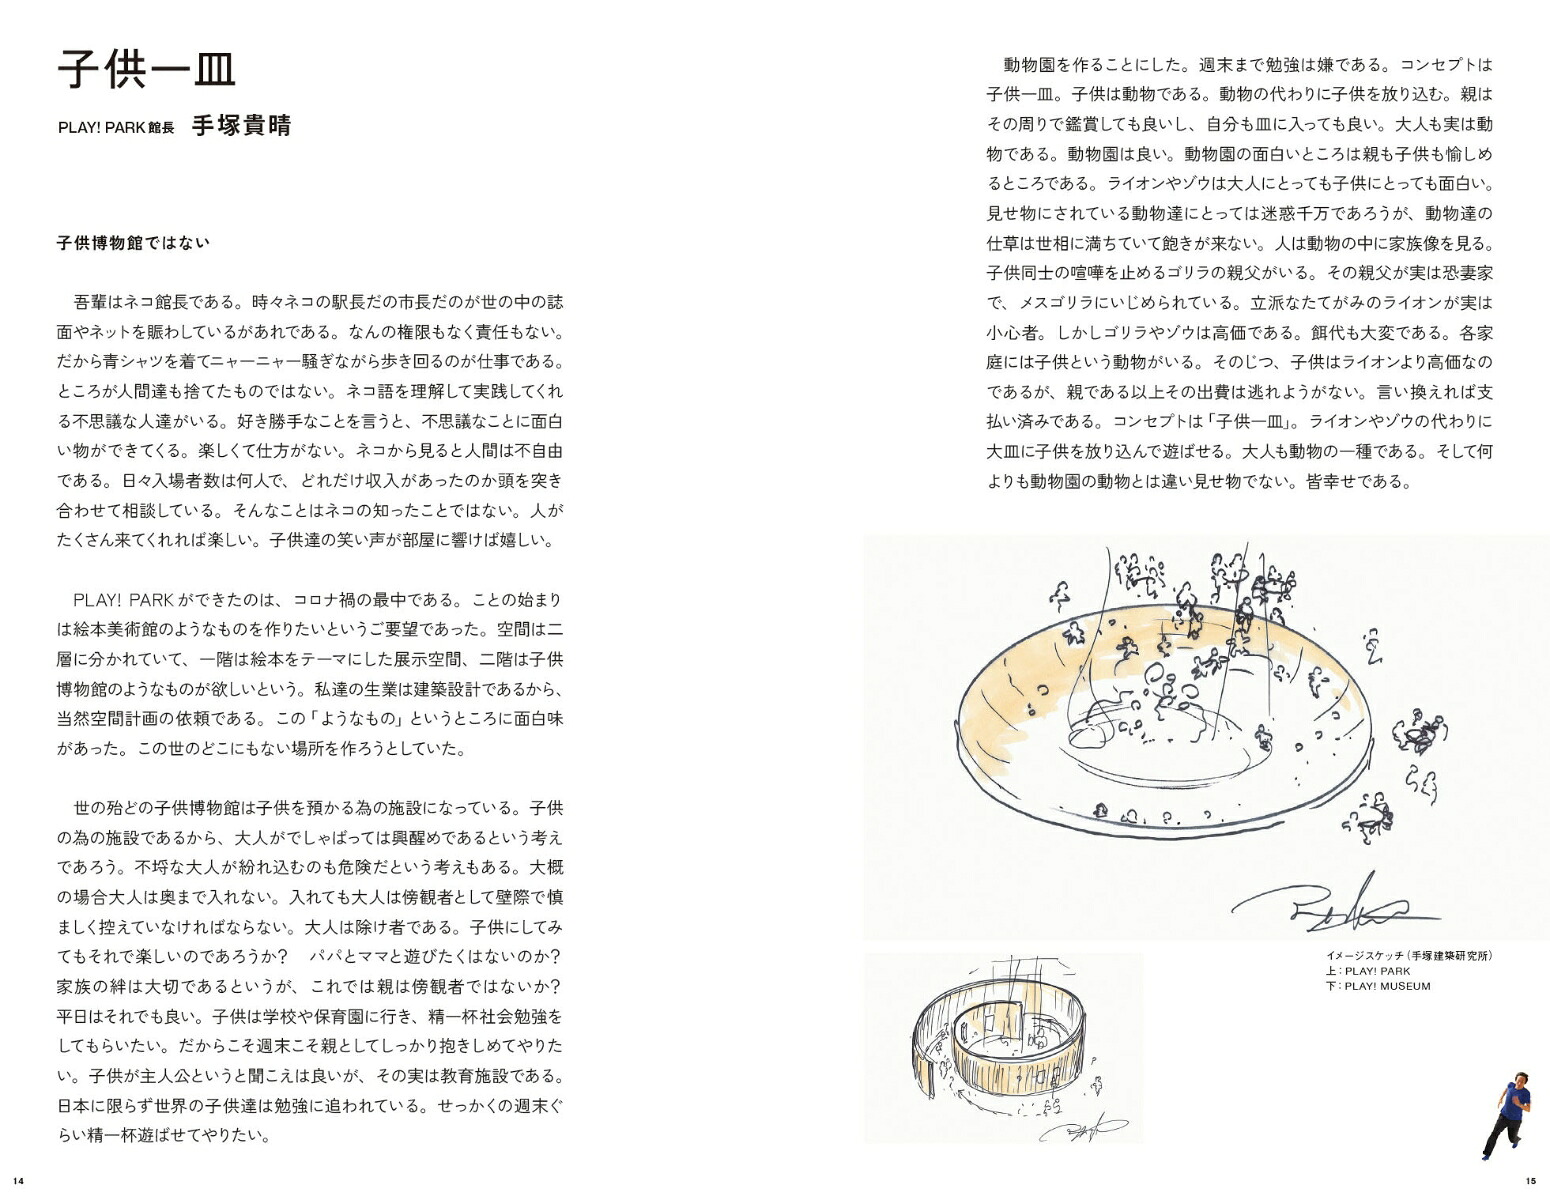 子供一皿
PLAY! PARK 館長　手塚貴晴
子供博物館ではない
　吾輩はネコ館長である。時々ネコの駅長だの市長だのが世の中の誌
面やネットを賑わしているがあれである。なんの権限もなく責任もない。
だから青シャツを着てニャーニャー騒ぎながら歩き回るのが仕事である。
ところが人間達も捨てたものではない。ネコ語を理解して実践してくれ
る不思議な人達がいる。好き勝手なことを言うと、不思議なことに面白
い物ができてくる。楽しくて仕方がない。ネコから見ると人間は不自由
である。日々入場者数は何人で、どれだけ収入があったのか頭を突き
合わせて相談している。そんなことはネコの知ったことではない。人が
たくさん来てくれれば楽しい。子供達の笑い声が部屋に響けば嬉しい。
　PLAY! PARKができたのは、コロナ禍の最中である。ことの始まり
は絵本美術館のようなものを作りたいというご要望であった。空間は二
層に分かれていて、一階は絵本をテーマにした展示空間、二階は子供
博物館のようなものが欲しいという。私達の生業は建築設計であるから、
当然空間計画の依頼である。この「ようなもの」というところに面白味
があった。この世のどこにもない場所を作ろうとしていた。
　世の殆どの子供博物館は子供を預かる為の施設になっている。子供
の為の施設であるから、大人がでしゃばっては興醒めであるという考え
であろう。不埒な大人が紛れ込むのも危険だという考えもある。大概
の場合大人は奥まで入れない。入れても大人は傍観者として壁際で慎
ましく控えていなければならない。大人は除け者である。子供にしてみ
てもそれで楽しいのであろうか？　パパとママと遊びたくはないのか？
家族の絆は大切であるというが、これでは親は傍観者ではないか？
平日はそれでも良い。子供は学校や保育園に行き、精一杯社会勉強を
してもらいたい。だからこそ週末こそ親としてしっかり抱きしめてやりた
い。子供が主人公というと聞こえは良いが、その実は教育施設である。
日本に限らず世界の子供達は勉強に追われている。せっかくの週末ぐ
らい精一杯遊ばせてやりたい。
14
　動物園を作ることにした。週末まで勉強は嫌である。コンセプトは
子供一皿。子供は動物である。動物の代わりに子供を放り込む。親は
その周りで鑑賞しても良いし、自分も皿に入っても良い。大人も実は動
物である。動物園は良い。動物園の面白いところは親も子供も愉しめ
るところである。ライオンやゾウは大人にとっても子供にとっても面白い。
見せ物にされている動物達にとっては迷惑千万であろうが、動物達の
仕草は世相に満ちていて飽きが来ない。人は動物の中に家族像を見る。
子供同士の喧嘩を止めるゴリラの親父がいる。その親父が実は恐妻家
で、メスゴリラにいじめられている。立派なたてがみのライオンが実は
小心者。しかしゴリラやゾウは高価である。餌代も大変である。各家
庭には子供という動物がいる。そのじつ、子供はライオンより高価なの
であるが、親である以上その出費は逃れようがない。言い換えれば支
払い済みである。コンセプトは「子供一皿」。ライオンやゾウの代わりに
大皿に子供を放り込んで遊ばせる。大人も動物の一種である。そして何
よりも動物園の動物とは違い見せ物でない。皆幸せである。
イメージスケッチ（手塚建築研究所）
上：PLAY! PARK
下：PLAY! MUSEUM
15